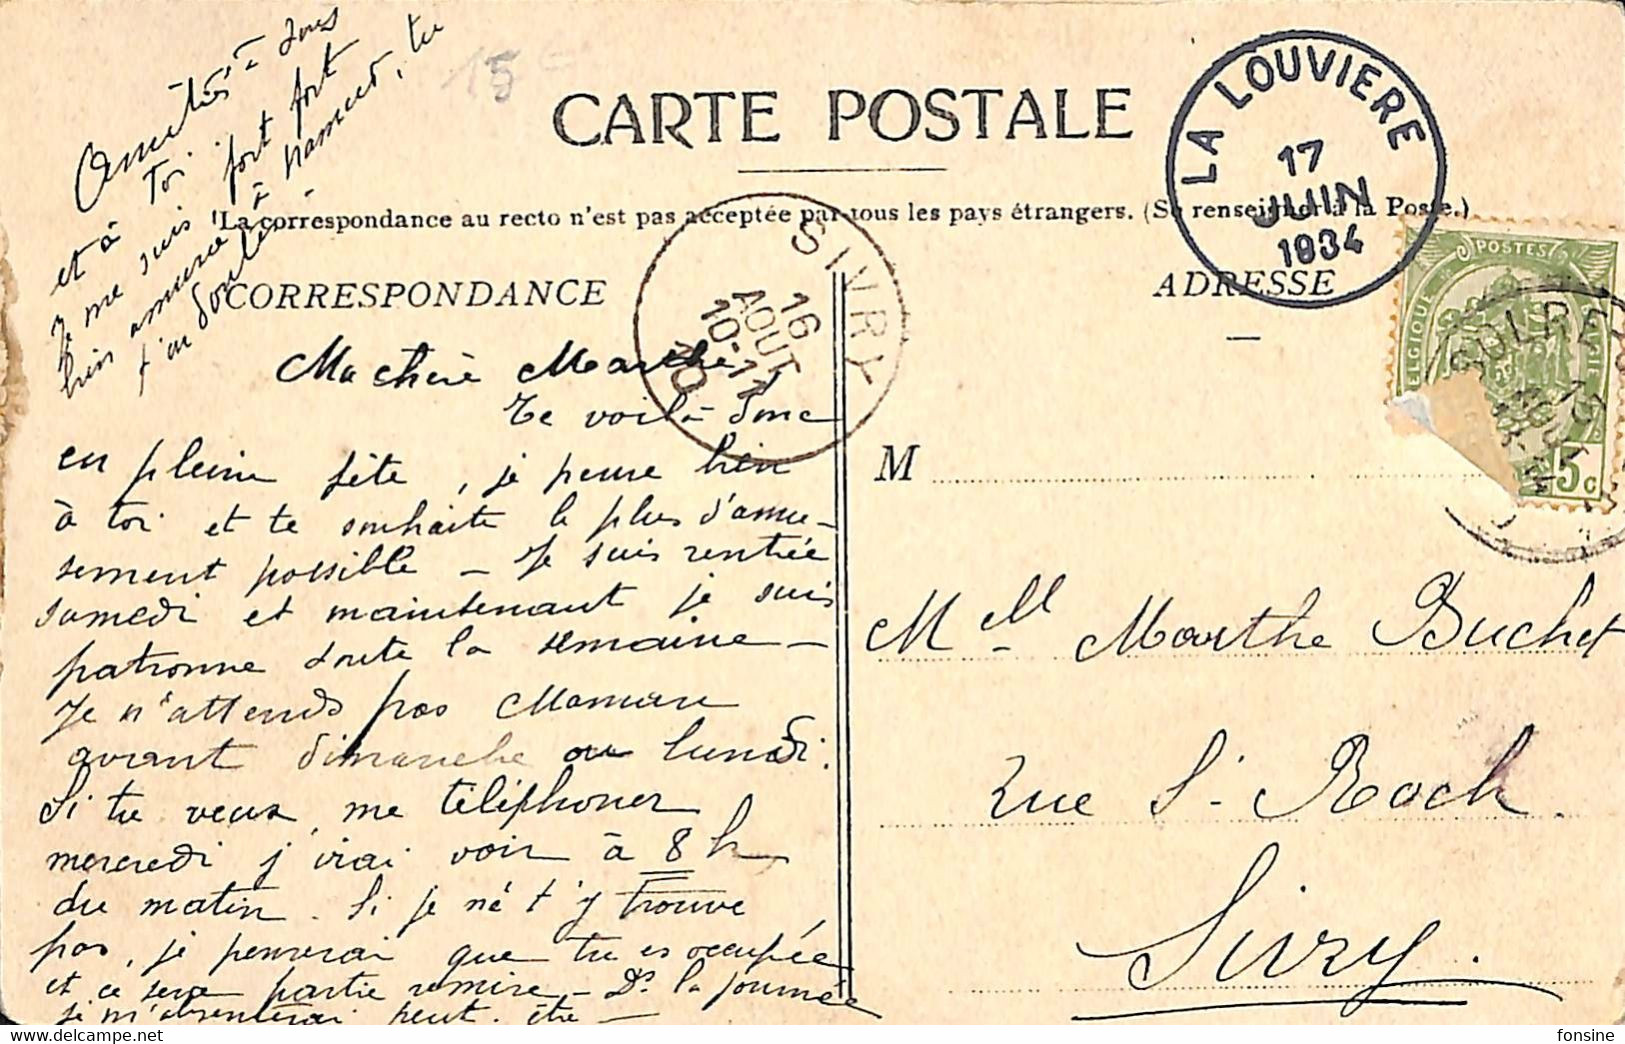 Amitiés à tous
et à toi
Je me suis fort fort
bien amusée à Namur, tu
t'en doutes
15
CARTE POSTALE
La correspondance au recto n'est pas acceptée par tous les pays étrangers. (Se renseigner à la Poste.)
CORRESPONDANCE
ADRESSE
LA LOUVIERE
17
JUIN
1934
SIVRY
16
AOUT
10-11
10
POSTES
BELGIQUE
SOLRE
13
AOUT
5c
Ma chère Marthe,
Te voilà donc
en pleine fête, je pense bien
à toi et te souhaite le plus d'amu-
sement possible – Je suis rentrée
samedi et maintenant je suis
patronne toute la semaine –
Je n'attends pas Maman
avant dimanche ou lundi.
Si tu veux me téléphoner
mercredi j'irai voir à 8 h
du matin. Si je ne t'y trouve
pas, je penserai que tu es occupée
et ce sera partie remise – Ds la journée
je m'absenterai peut-être –
M
Mlle Marthe Buchet
Rue St-Roch.
Sivry.
fonsine